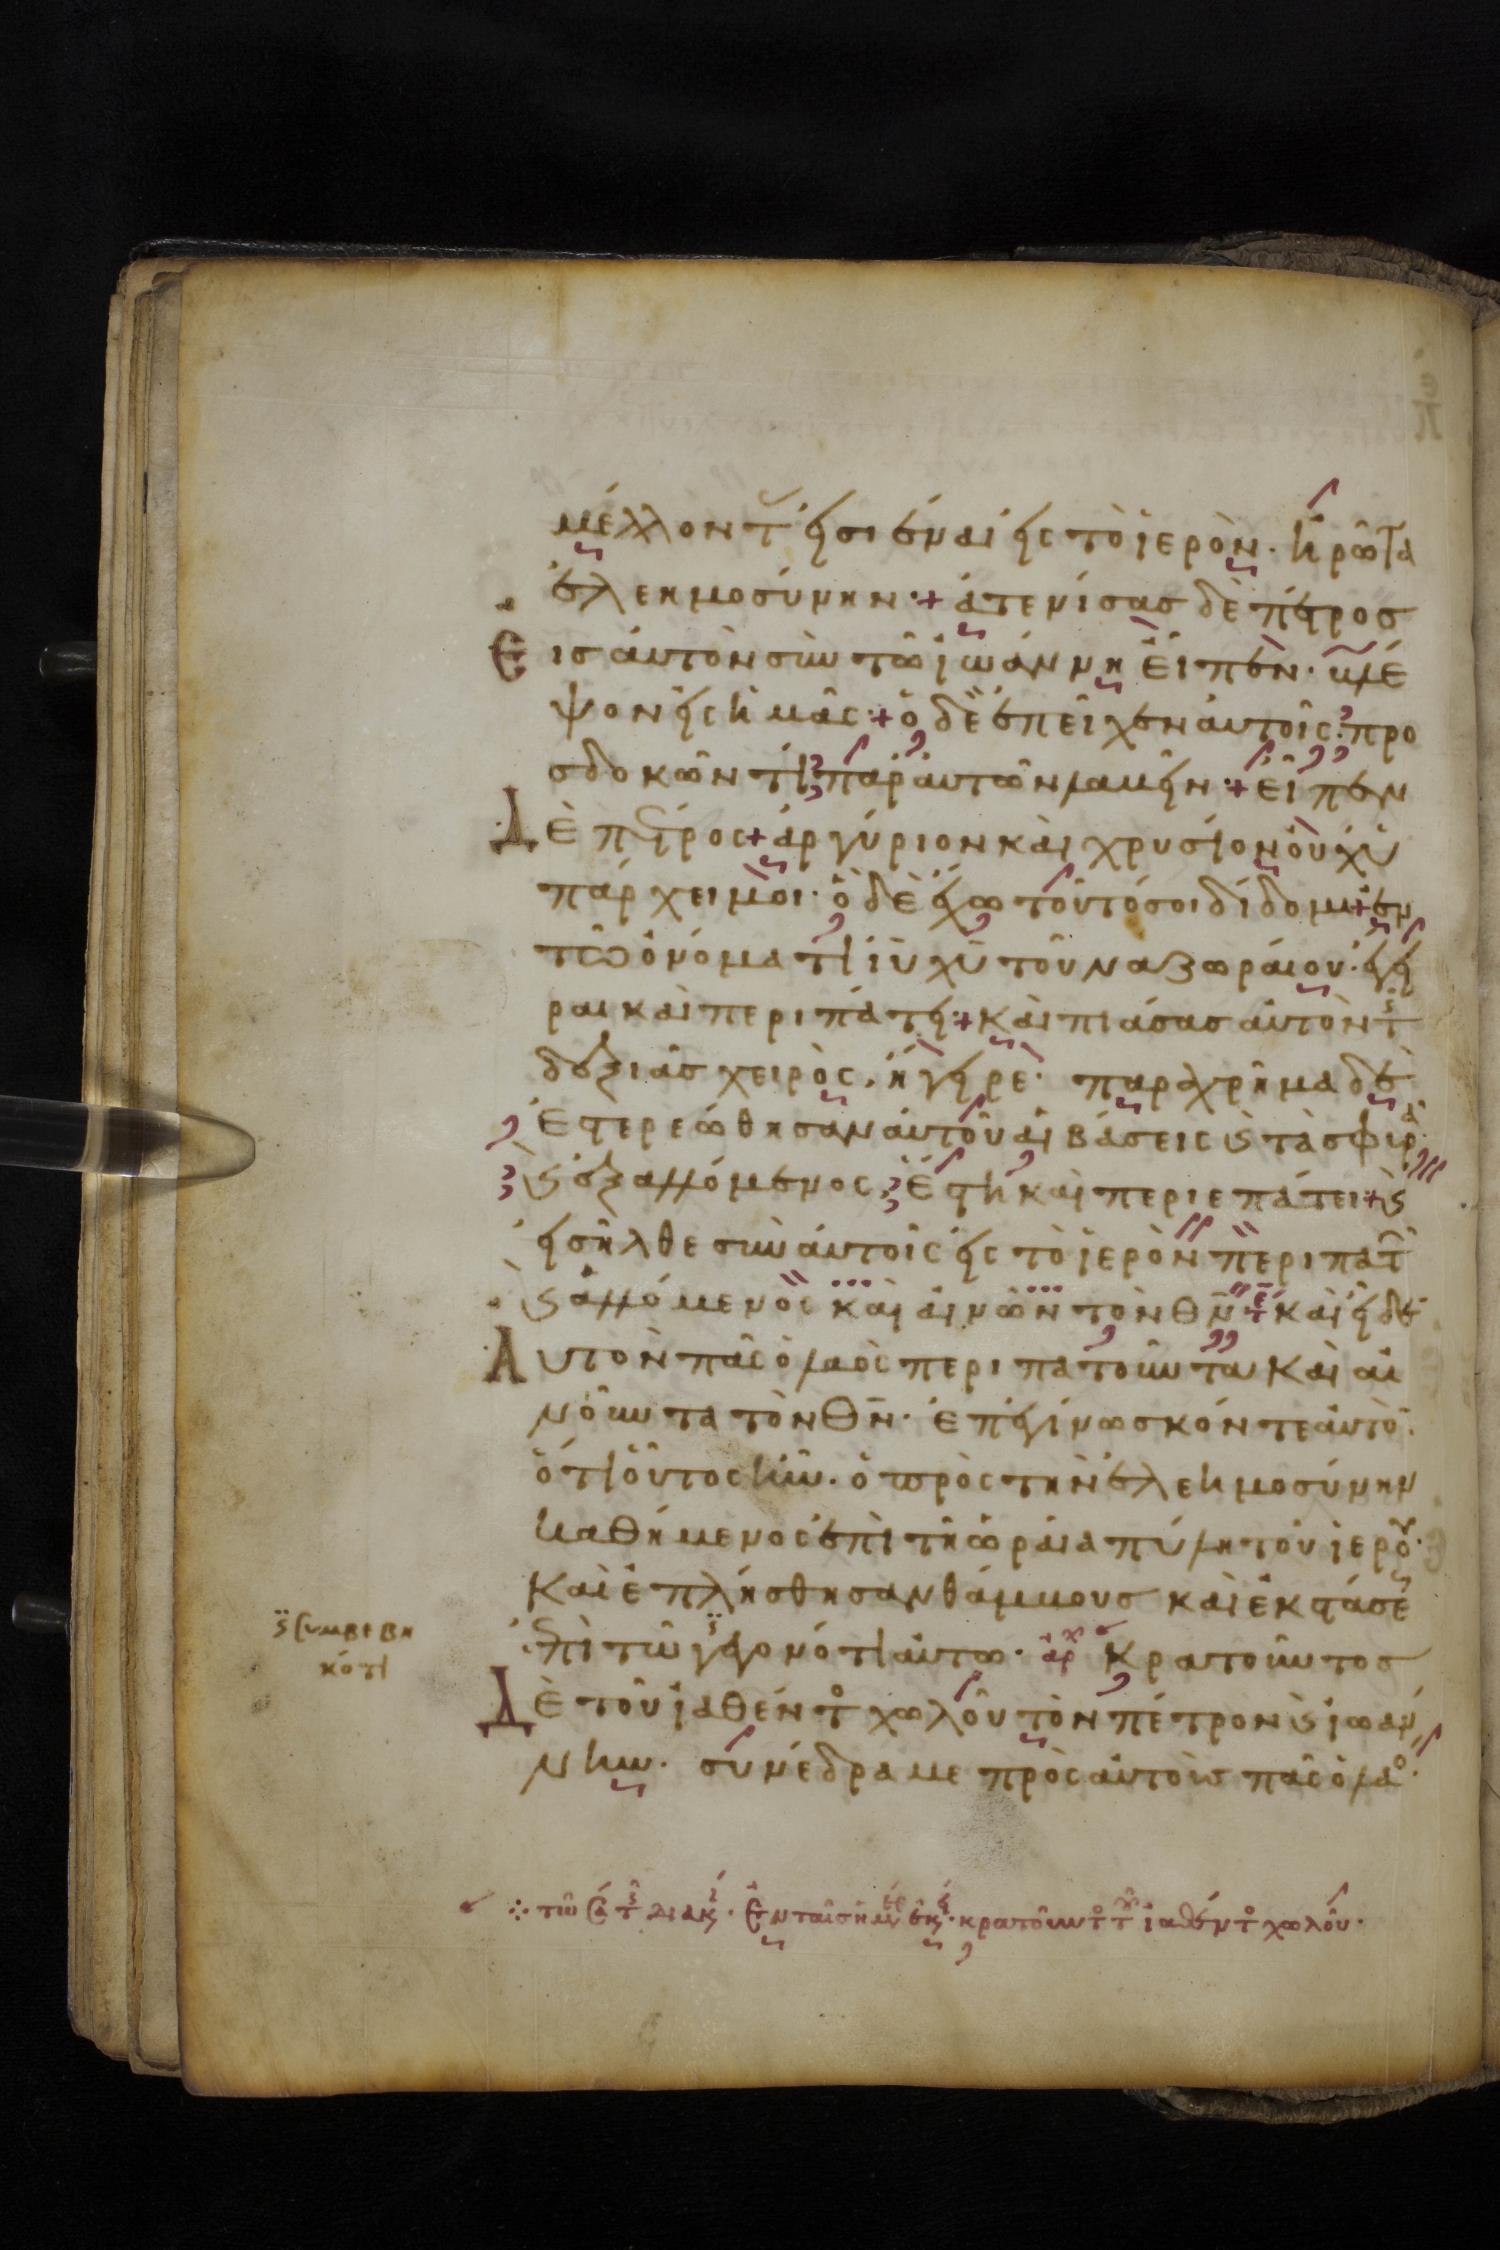 μέλλοντ εἰσιέναι εἰς τὸ ἱερὸν· ἠρώτα
ἐλεημοσύνην·+ ἀτενίσας δὲ πέτρος
Εις ἀυτὸν σὺν τῶ ἰωάννη ἔιπεν· βλέ
ψον εἰς ἡμᾶς·+ ὁ δὲ ἐπεῖχεν ἀυτοῖς· προ
σδοκῶν τὶ παρ ἀυτῶν λαβεῖν·+ εἶπεν
Δὲ πέτρος+ ἀργύριον καὶ χρυσίον ὀυχ ὑ
πάρχει μοι· ὃ δὲ ἔχω τοῦτό σοι δίδομι+ ἐν
τῶ ὀνόματι ἰῦ χῦ τοῦ ναζωράιου· ἔγει
ραι καὶ περιπάτει·+ καὶ πιάσας ἀυτὸν τ
δεξιᾶς χειρὸς, ἤγειρε· παραχρῆμα δὲ
ἐστερεώθησαν ἀυτοῦ ἁι βάσεις ϗ τὰ σφυρ
ϗ ἐξαλλόμενος, ἔστη καὶ περιεπάτει+ ϗ
εἰσῆλθε σὺν ἀυτοῖς εἰς τὸ ἱερὸν περιπατ
ϗ ἁλλόμενος καὶ ἀινῶν τὸν θν καὶ εἶδε
Αυτὸν πᾶς ὁ λαὸς περιπατοῦντα καὶ ἀι
νοῦντα τὸν θν· ἐπεγίνωσκόν τε ἀυτὸ
ὅτι οὗτος ἦν· ὁ πρὸς τὴν ἐλεημοσύνην
καθήμενος ἐπὶ τῆ ὡράια πύλη τοῦ ἱεροῦ·
Καὶ ἐπλήσθησαν θάμβους καὶ ἐκστάσε
ἐπὶ τῶ γεγονότι ἀυτω· ἀρχ Κρατοῦντος
ϗ συμβεβη
κότι
Δὲ τοῦ ἰαθέντο χωλοῦ τὸν πέτρον ϗ ἰωάν
νην· συνέδραμε πρὸς ἀυτοὺς πᾶς ὁ λαο·
κρατοῦντο τ ἰαθέντο χωλοῦ·